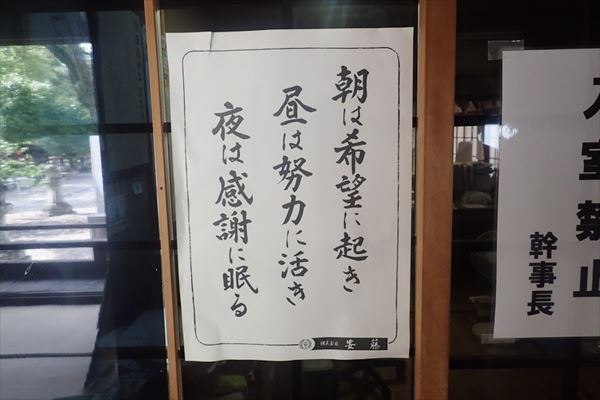 朝は希望に起き
昼は努力に活き
夜は感謝に眠る
株式会社 安藤
入室禁止
幹事長